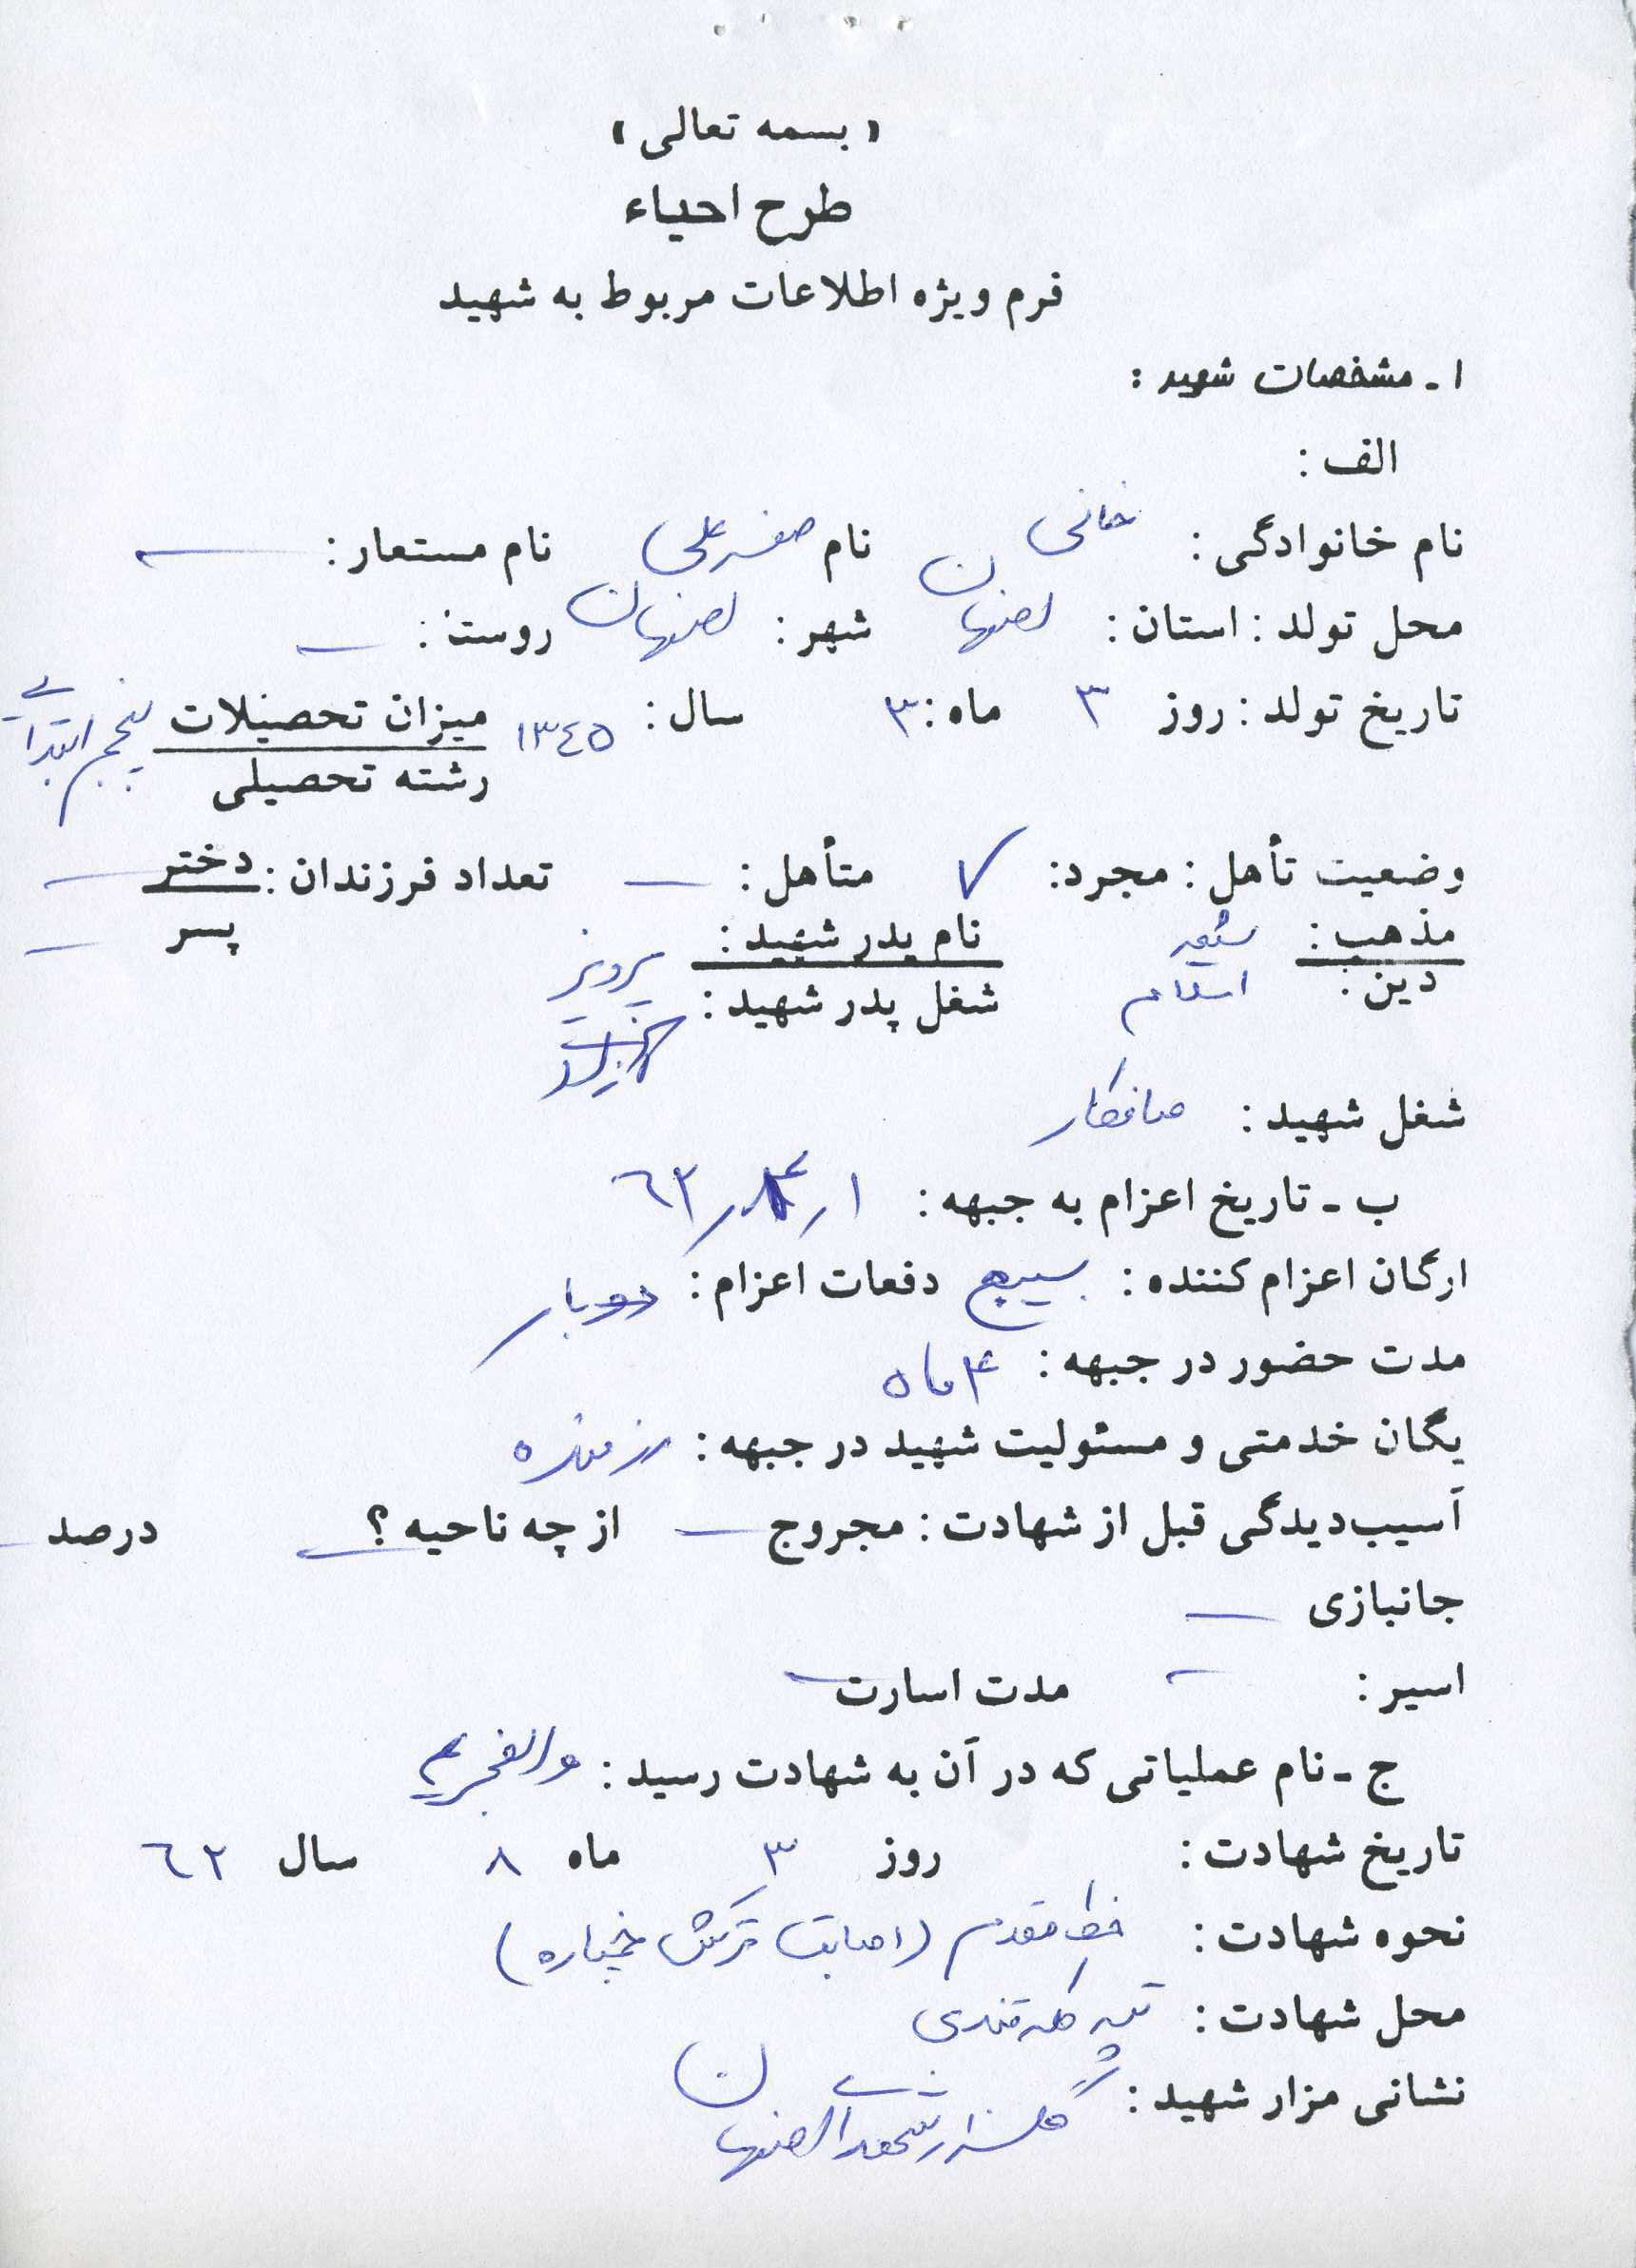 « بسمه تعالی »
طرح احیاء
فرم ویژه اطلاعات مربوط به شهید
۱ - مشخصات شهید :
الف :
نام خانوادگی : خانی نام صفرعلی نام مستعار : —
محل تولد : استان : اصفهان شهر : اصفهان روستا : —
تاریخ تولد : روز ۳ ماه : ۳ سال : ۱۳٤٥ میزان تحصیلات پنجم ابتدایی
رشته تحصیلی
وضعیت تأهل : مجرد : ✓ متأهل : — تعداد فرزندان : دختر —
مذهب : شیعه نام پدر شهید : پرویز پسر —
دین : اسلام شغل پدر شهید :
شغل شهید : صافکار
ب - تاریخ اعزام به جبهه : ۱ / ۴ / ٦٢
ارگان اعزام کننده : بسیج دفعات اعزام : دوبار
مدت حضور در جبهه : ۴ ماه
یگان خدمتی و مسئولیت شهید در جبهه : رزمنده
آسیب‌دیدگی قبل از شهادت : مجروح — از چه ناحیه ؟ — درصد —
جانبازی —
اسیر : — مدت اسارت —
ج - نام عملیاتی که در آن به شهادت رسید : والفجر ۴
تاریخ شهادت : روز ۳ ماه ۸ سال ٦٢
نحوه شهادت : خط مقدم (اصابت ترکش خمپاره)
محل شهادت : تپه کله قندی
نشانی مزار شهید : گلزار شهدای اصفهان